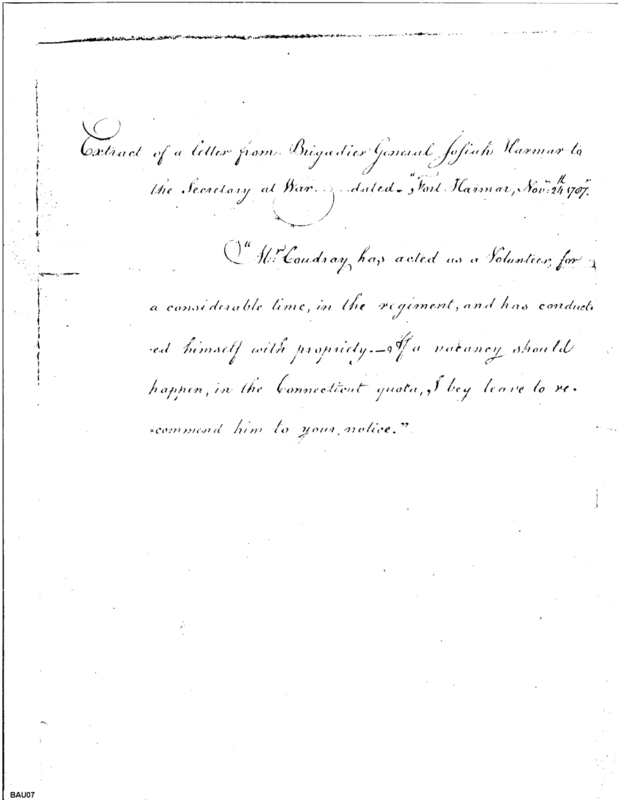 Extract of a letter from Brigadier General Josiah Harmar to
the Secretary at War dated "Fort Harmar, Novr. 24th 1787."
"Mr. Coudray has acted as a Volunteer, for
a considerable time, in the regiment, and has conduct-
-ed himself with propriety.— If a vacancy should
happen, in the Connecticut quota, I beg leave to re-
-commend him to your notice."
BAU07